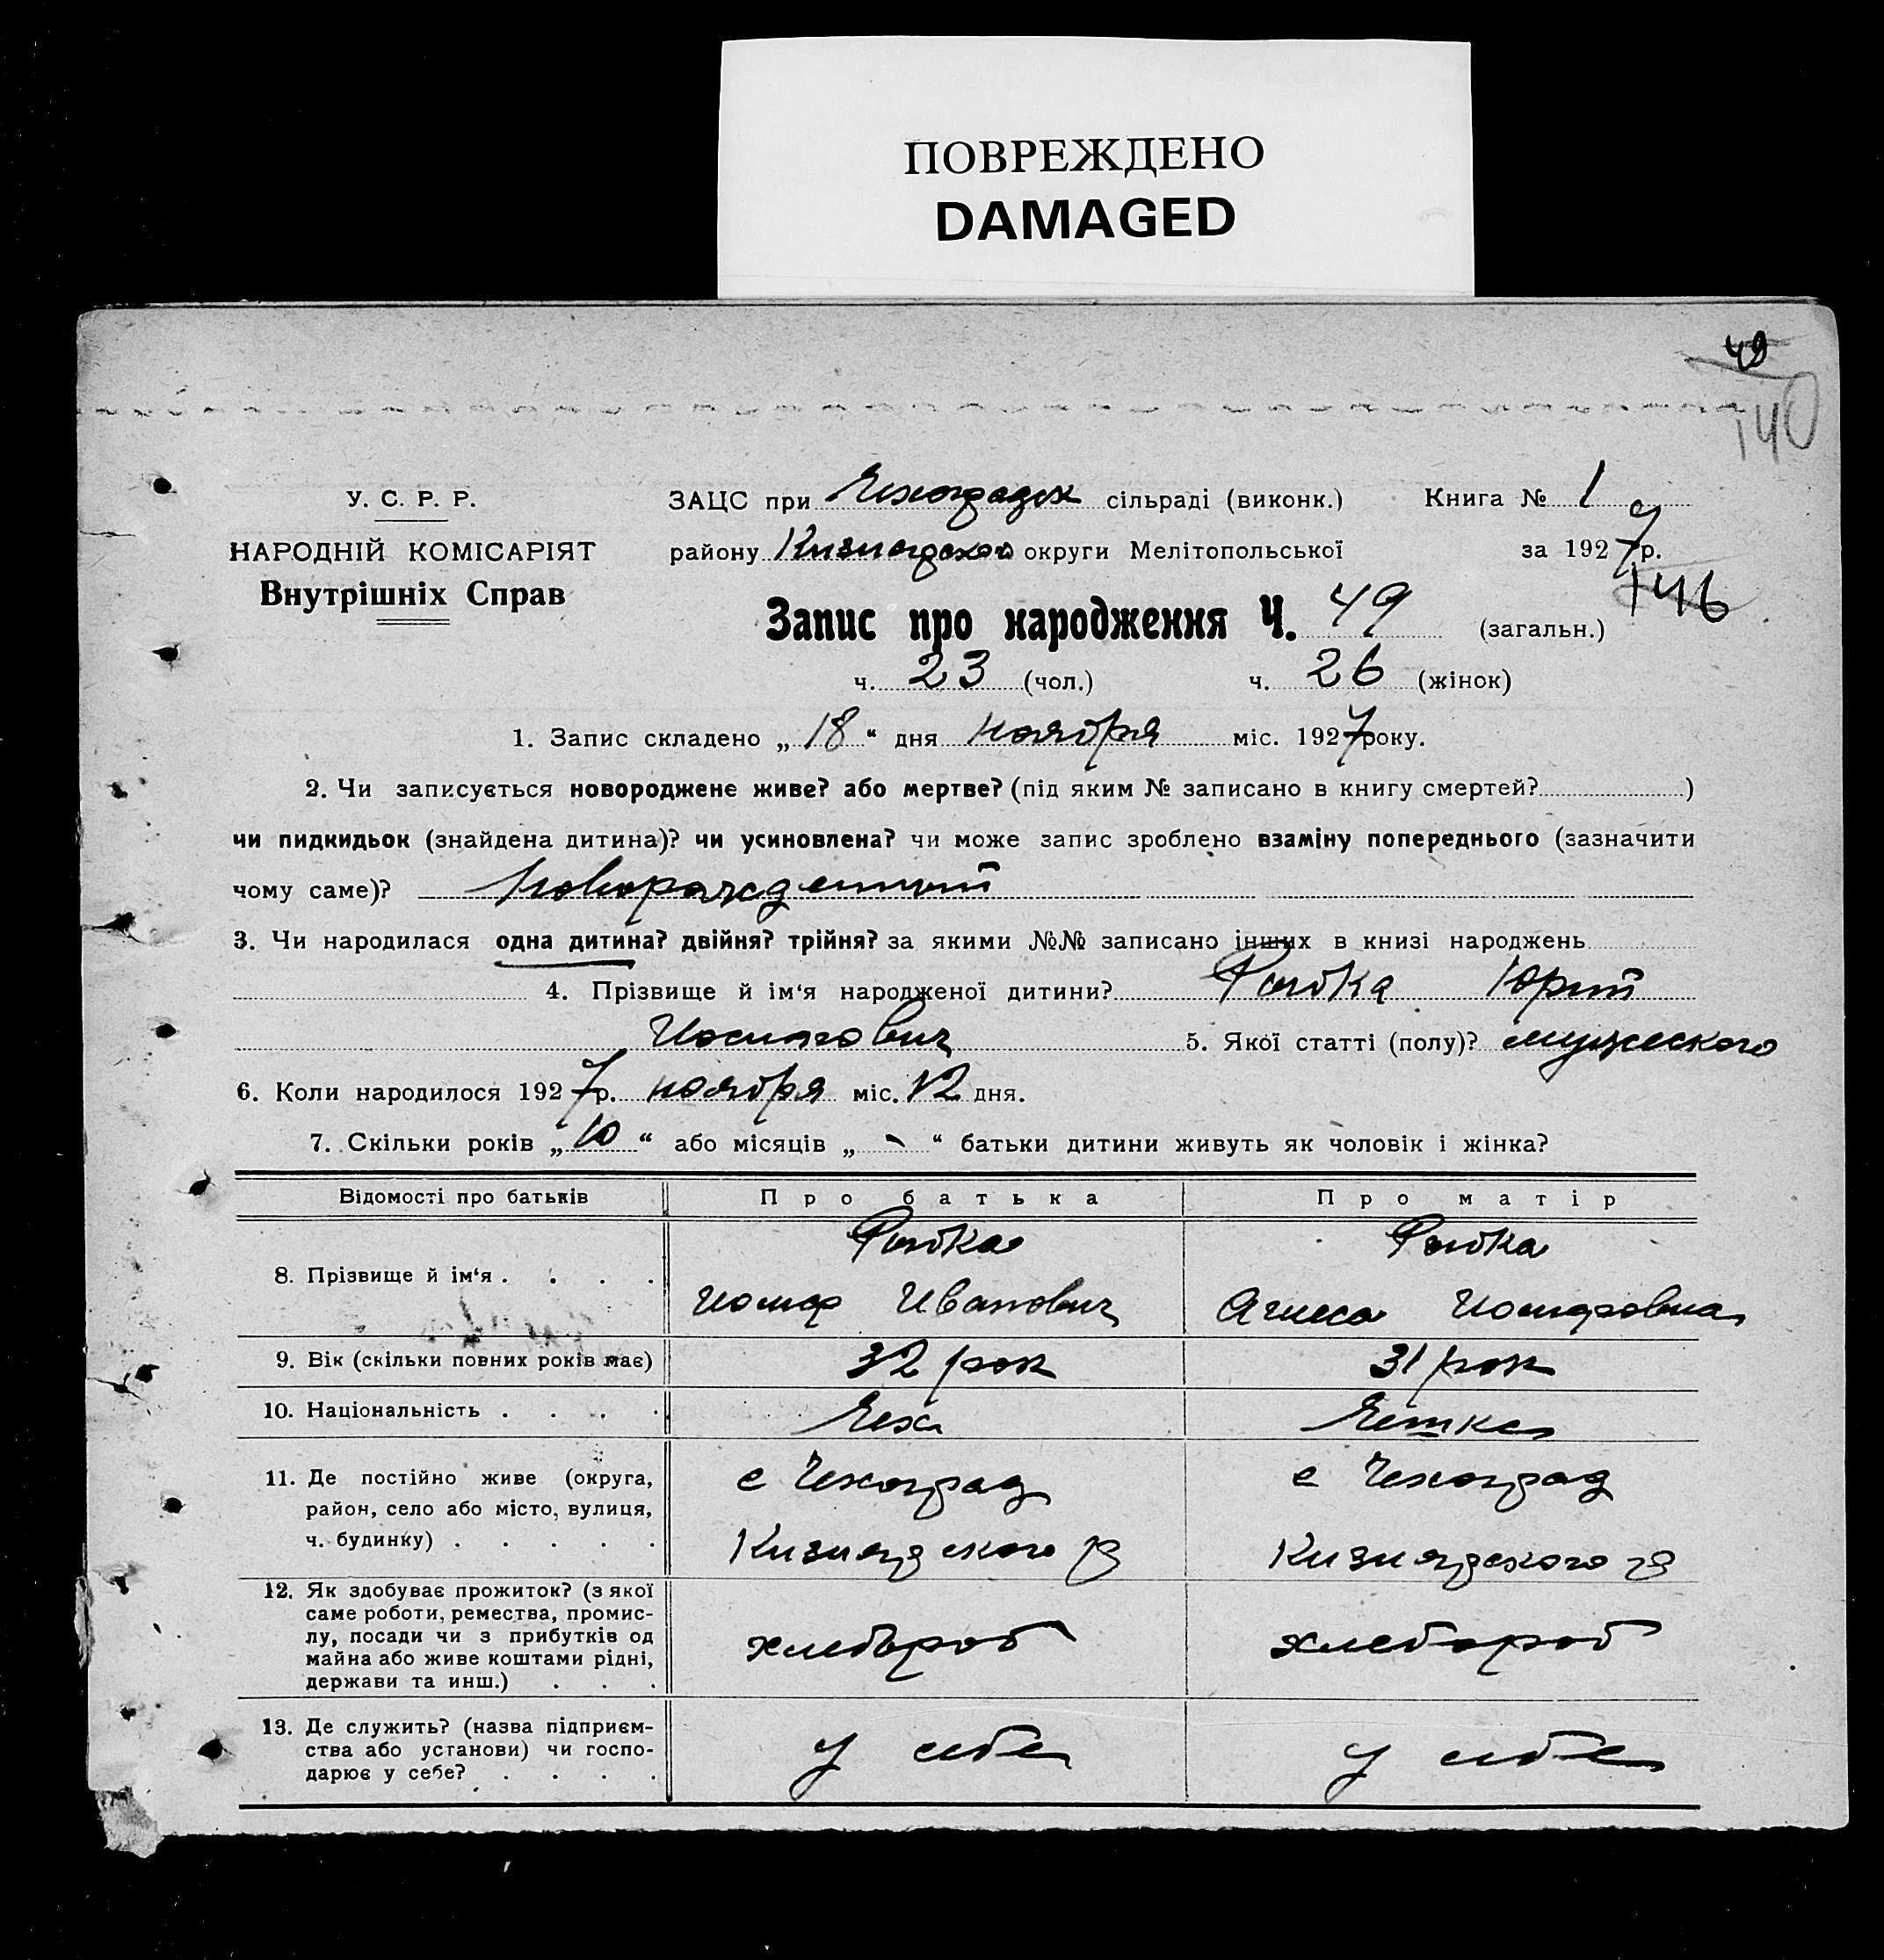 ПОВРЕЖДЕНО
DAMAGED
49
140
У. С. Р. Р.
НАРОДНІЙ КОМІСАРІЯТ
Внутрішніх Справ
ЗАЦС при Чехоградск сільраді (виконк.) Книга № 1
району Кизиярской округи Мелітопольської за 1927 р.
146
Запис про народження Ч. 49 (загальн.)
ч. 23 (чол.) ч. 26 (жінок)
1. Запис складено „ 18 “ дня ноября міс. 1927 року.
2. Чи записується новороджене живе? або мертве? (під яким № записано в книгу смертей? )
чи пидкидьок (знайдена дитина)? чи усиновлена? чи може запис зроблено взаміну попереднього (зазначити
чому саме)? новорожденный
3. Чи народилася одна дитина? двійня? трійня? за якими №№ записано інших в книзі народжень
4. Прізвище й ім‘я народженої дитини? Рыбка Юрий
Иосифович 5. Якої статті (полу)? мужеского
6. Коли народилося 1927 р. ноября міс. 12 дня.
7. Скільки років „ 10 “ або місяців „ - “ батьки дитини живуть як чоловік і жінка?
Відомості про батьків Про батька Про матір
8. Прізвище й ім‘я . . . .
Рыбка Рыбка
Иосиф Иванович Агнеса Иосифовна
9. Вік (скільки повних років має) 32 рок 31 рок
10. Національність . . . . Чех Чешка
11. Де постійно живе (округа,
район, село або місто, вулиця,
ч. будинку) . . . . .
с Чехоград с Чехоград
Кизиярского р Кизиярского р
12. Як здобуває прожиток? (з якої
саме роботи, ремества, промис-
лу, посади чи з прибутків од
майна або живе коштами рідні,
держави та инш.) . . .
хлебороб хлебороб
13. Де служить? (назва підприєм-
ства або установи) чи госпо-
дарює у себе? . . . .
у себе у себе